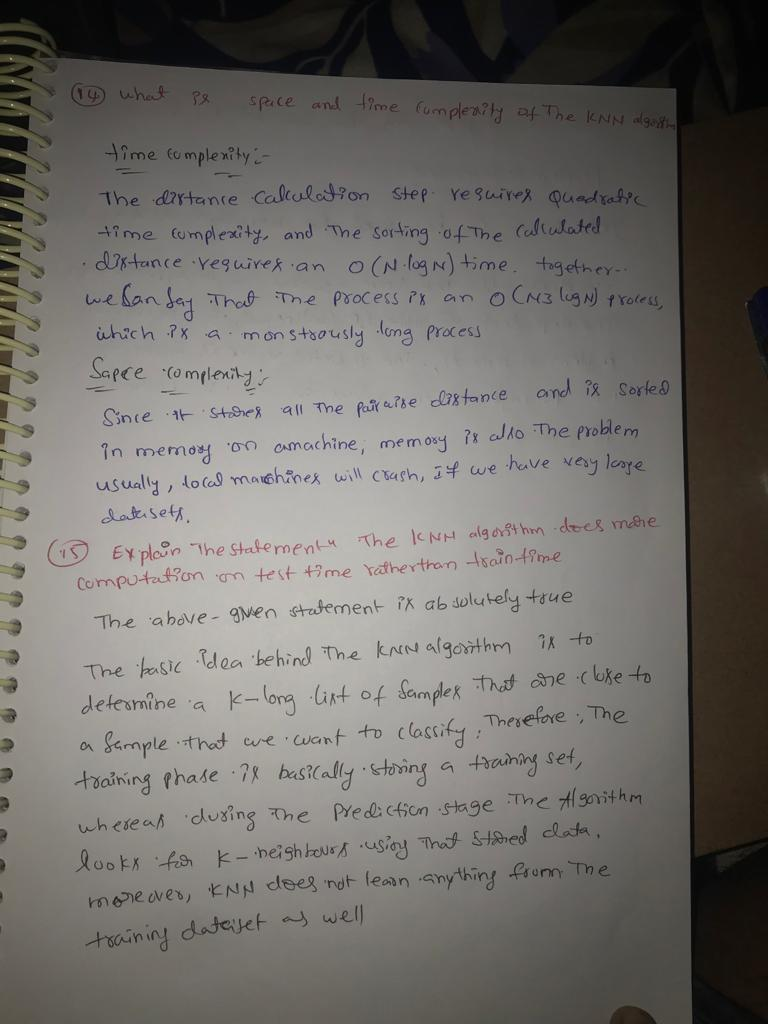 14 What is space and time complexity of The KNN algorithm
time complexity:-
The distance calculation step requires Quadratic
time complexity, and the sorting of the calculated
distance requires an O(N logN) time. together..
we can say That The process is an O(N3 logN) process,
which is a monstrously long process
Sapce complexity:-
Since it stores all The pairwise distance and is sorted
in memory on amachine, memory is also The problem
usually, local machines will crash, if we have very large
datasets.
15 Explain The statement " The KNN algorithm does more
computation on test time ratherthan train time
The above-given statement is absolutely true
The basic idea behind The KNN algorithm is to
determine a K-long list of samples That are close to
a sample that we want to classify, Therefore, The
training phase is basically storing a training set,
whereas during The Prediction stage The Algorithm
looks for K-neighbours using That stored data.
moreover, KNN does not learn anything from The
training dataset as well